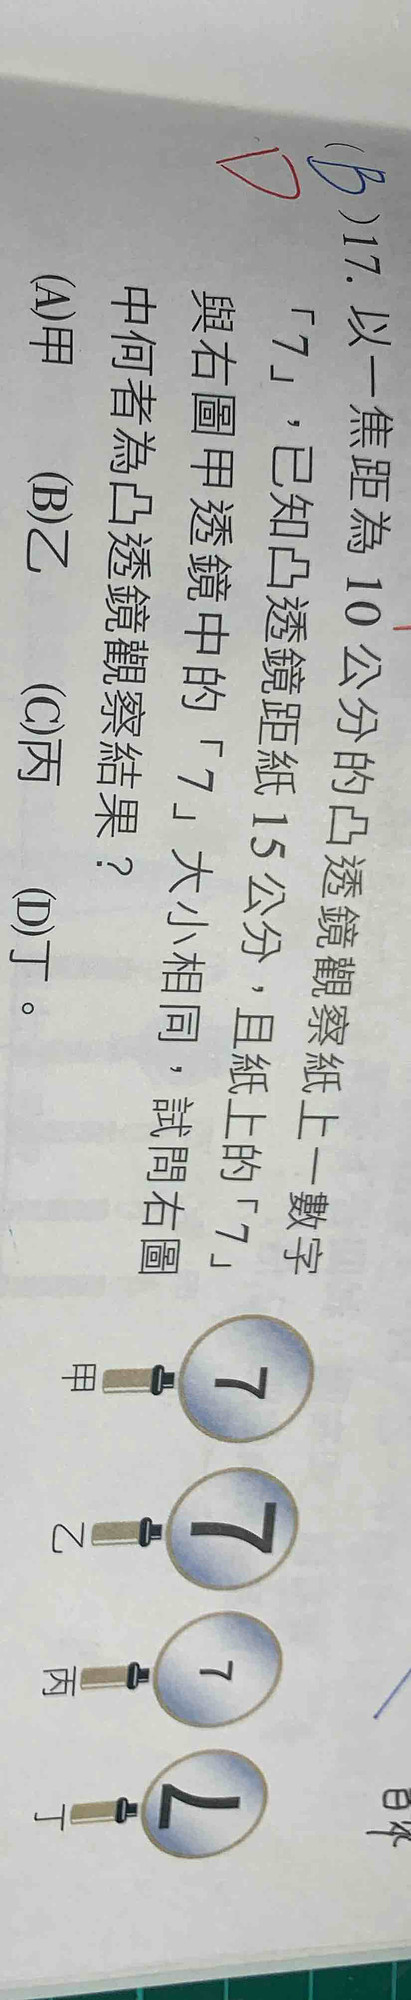 (B)17. 以一焦距為 10 公分的凸透鏡觀察紙上一數字
D
「7」，已知凸透鏡距紙 15 公分，且紙上的「7」
與右圖甲透鏡中的「7」大小相同，試問右圖
中何者為凸透鏡觀察結果？
(A)甲 (B)乙 (C)丙 (D)丁。
7 7 7 7
甲 乙 丙 丁